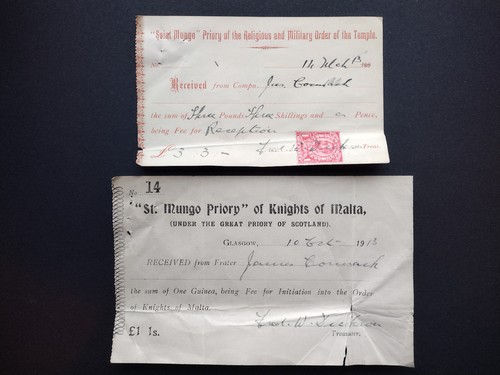 "Saint Mungo" Priory of the Religious and Military Order of the Temple.
No
14 Mch 13 190
Received from Compn. Jas. Cormack
the sum of Three Pounds Three Shillings and Pence,
being Fee for Reception
£3 3 – Fred. W. Treasr.
No 14
"St. Mungo Priory" of Knights of Malta,
(UNDER THE GREAT PRIORY OF SCOTLAND).
GLASGOW, 10 Oct 1913
RECEIVED from Frater James Cormack
the sum of One Guinea, being Fee for Initiation into the Order
of Knights of Malta.
Fred. W.
£1 1s. Treasurer.